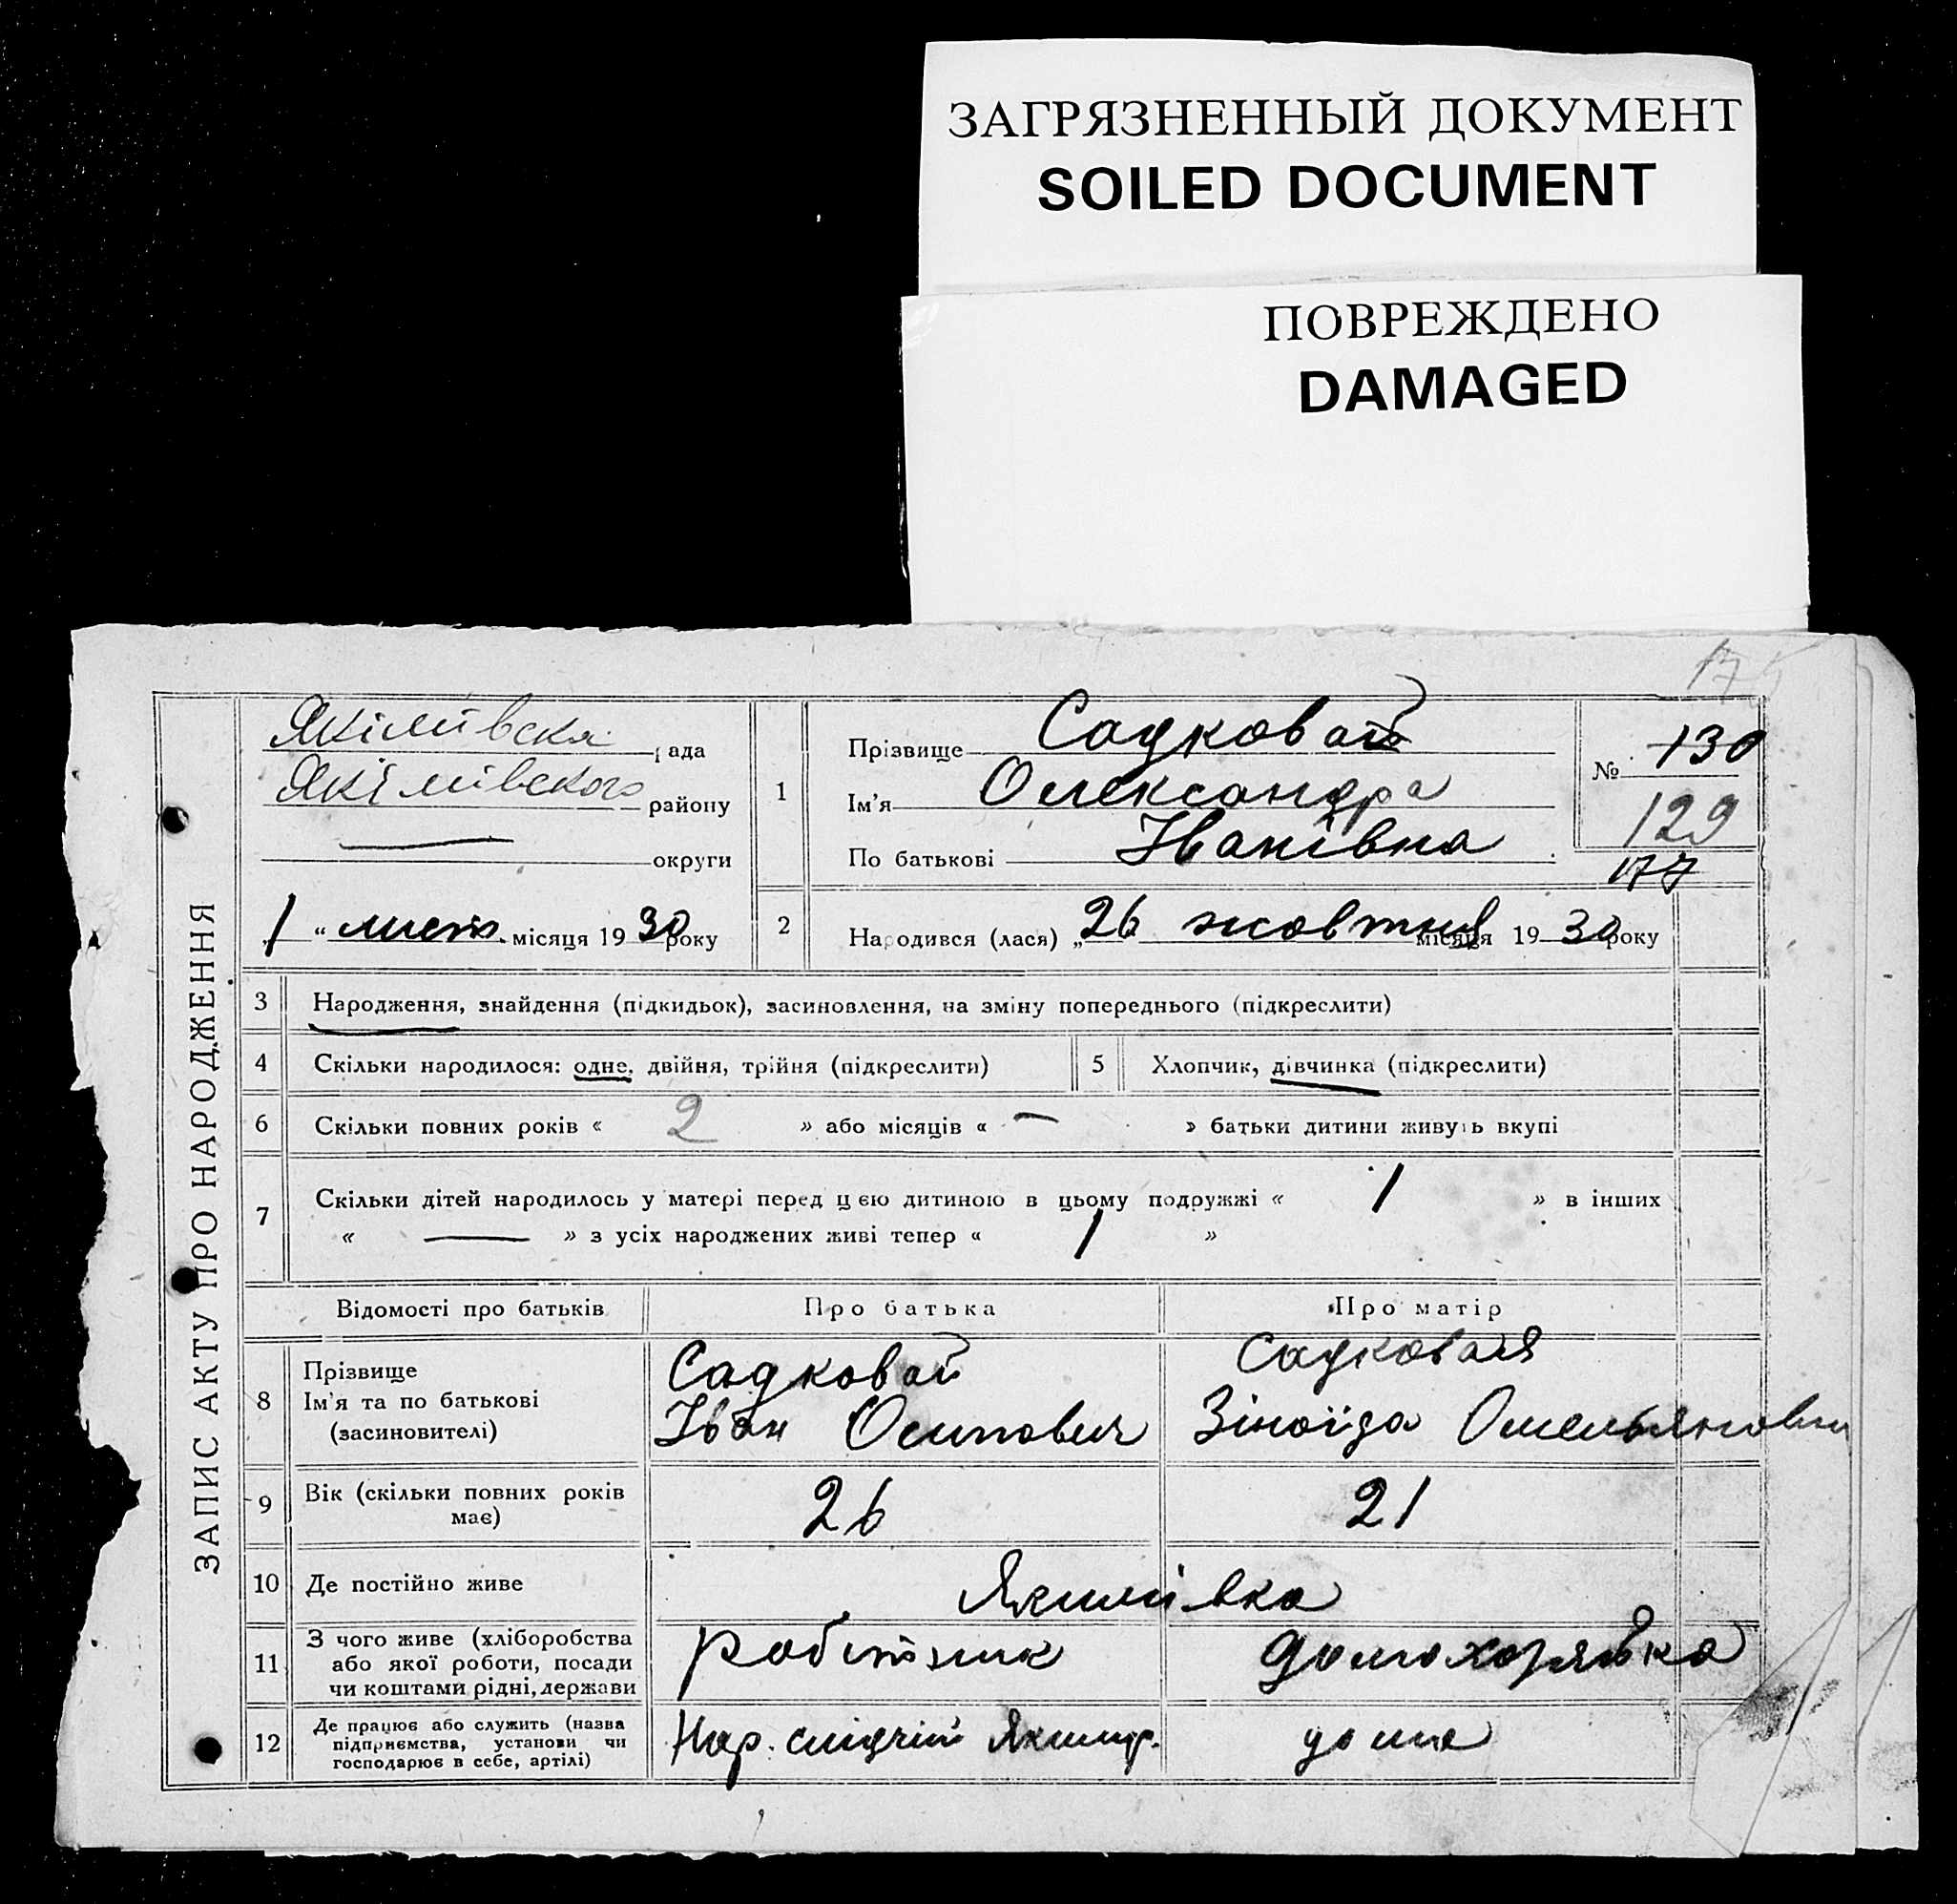 ЗАГРЯЗНЕННЫЙ ДОКУМЕНТ
SOILED DOCUMENT
ПОВРЕЖДЕНО
DAMAGED
ЗАПИС АКТУ ПРО НАРОДЖЕННЯ
Якімівска рада
Якімівского району
округи
1 " лист. місяця 1930 року
1 Прізвище Садковая
Ім'я Олександра
По батькові Іванівна
№ 130
129
177
2 Народився (лася) „26 жовтня місяця 1930 року
3 Народження, знайдення (підкидьок), засиновлення, на зміну попереднього (підкреслити)
4 Скільки народилося: одне, двійня, трійня (підкреслити) 5 Хлопчик, дівчинка (підкреслити)
6 Скільки повних років « 2 » або місяців « — » батьки дитини живуть вкупі
7 Скільки дітей народилось у матері перед цією дитиною в цьому подружжі « 1 » в інших
« — » з усіх народжених живі тепер « 1 »
Відомості про батьків Про батька Про матір
8 Прізвище Садковой Садковая
Ім'я та по батькові Іван Осипович Зіноїда Омельяновна
(засиновителі)
9 Вік (скільки повних років має) 26 21
10 Де постійно живе Якимівка
11 З чого живе (хліборобства або якої роботи, посади чи коштами рідні, держави робітник домохозяйка
12 Де працює або служить (назва підприємства, установи чи господарює в себе, артілі) Нар. слідчій дома